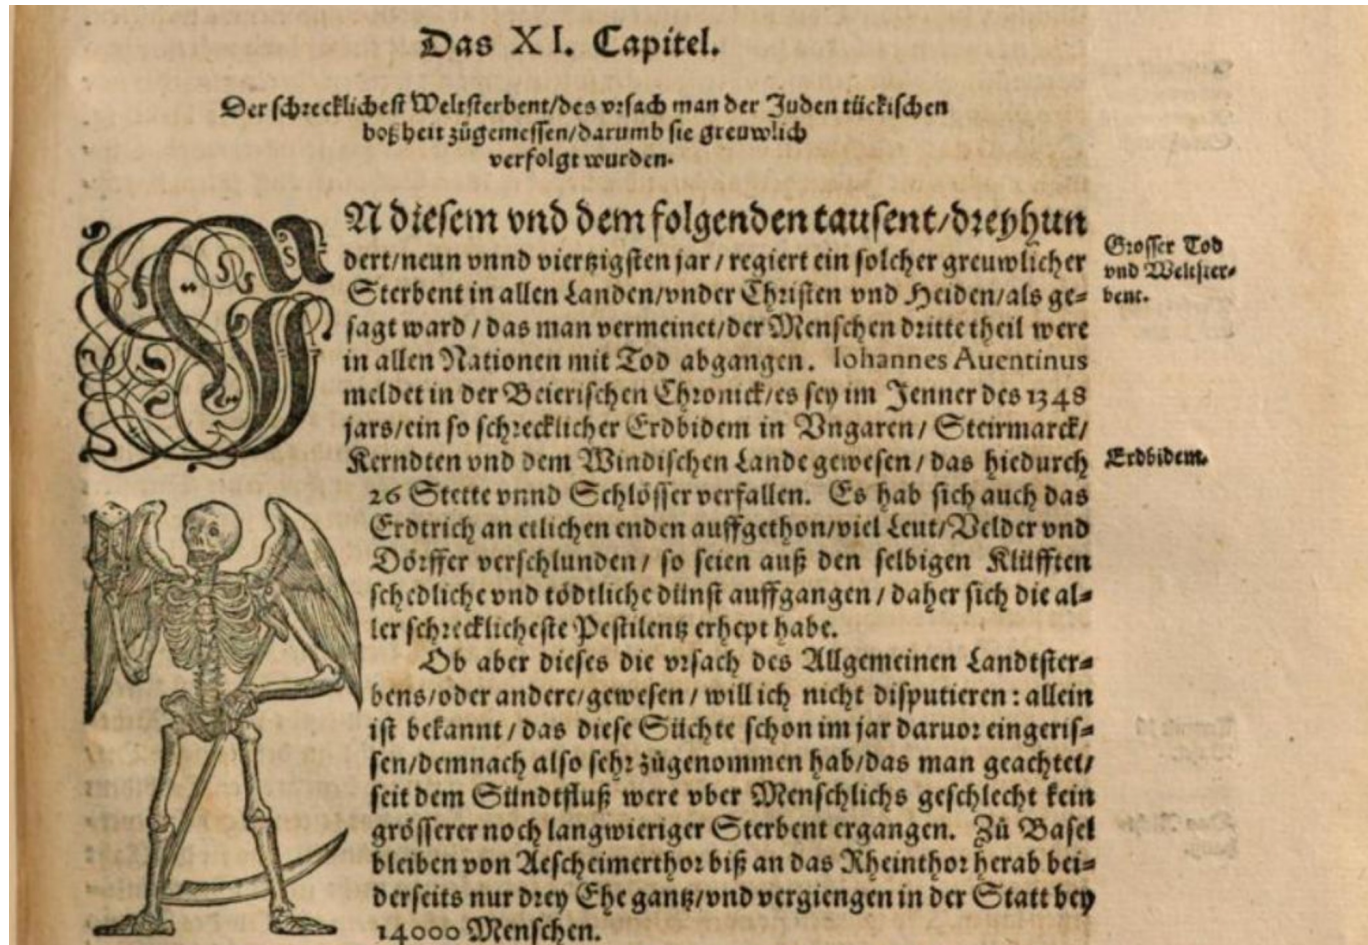 Das XI. Capitel.
Der schrecklichest Weltsterbent/des vrsach man der Juden tückischen
boßheit zůgemessen/darumb sie greuwlich
verfolgt wurden.
IN diesem vnd dem folgenden tausent/dreyhun
dert/neun vnnd viertzigsten jar / regiert ein solcher greuwlicher
Sterbent in allen Landen/vnder Christen vnd Heiden/als ge=
sagt ward / das man vermeinet/der Menschen dritte theil were
in allen Nationen mit Tod abgangen. Iohannes Auentinus
meldet in der Beierischen Chronick/es sey im Jenner des 1348
jars/ein so schrecklicher Erdbidem in Vngaren/ Steirmarck/
Kerndten vnd dem Windischen Lande gewesen / das hiedurch
26 Stette vnnd Schlösser verfallen. Es hab sich auch das
Erdtrich an etlichen enden auffgethon/viel Leut/Velder vnd
Dörffer verschlunden / so seien auß den selbigen Klüfften
schedliche vnd tödtliche dünst auffgangen / daher sich die al=
ler schrecklicheste Pestilentz erhept habe.
Ob aber dieses die vrsach des Allgemeinen Landtster=
bens/oder andere/gewesen / will ich nicht disputieren : allein
ist bekannt / das diese Süchte schon im jar daruor eingeris=
sen/demnach also sehr zůgenommen hab/das man geachtet/
seit dem Sündtfluß were vber Menschlichs geschlecht kein
grösserer noch langwieriger Sterbent ergangen. Zů Basel
bleiben von Aescheimerthor biß an das Rheinthor herab bei=
derseits nur drey Ehe gantz/vnd vergiengen in der Statt bey
14000 Menschen.
Grosser Tod
vnd Weltster=
bent.
Erdbidem.